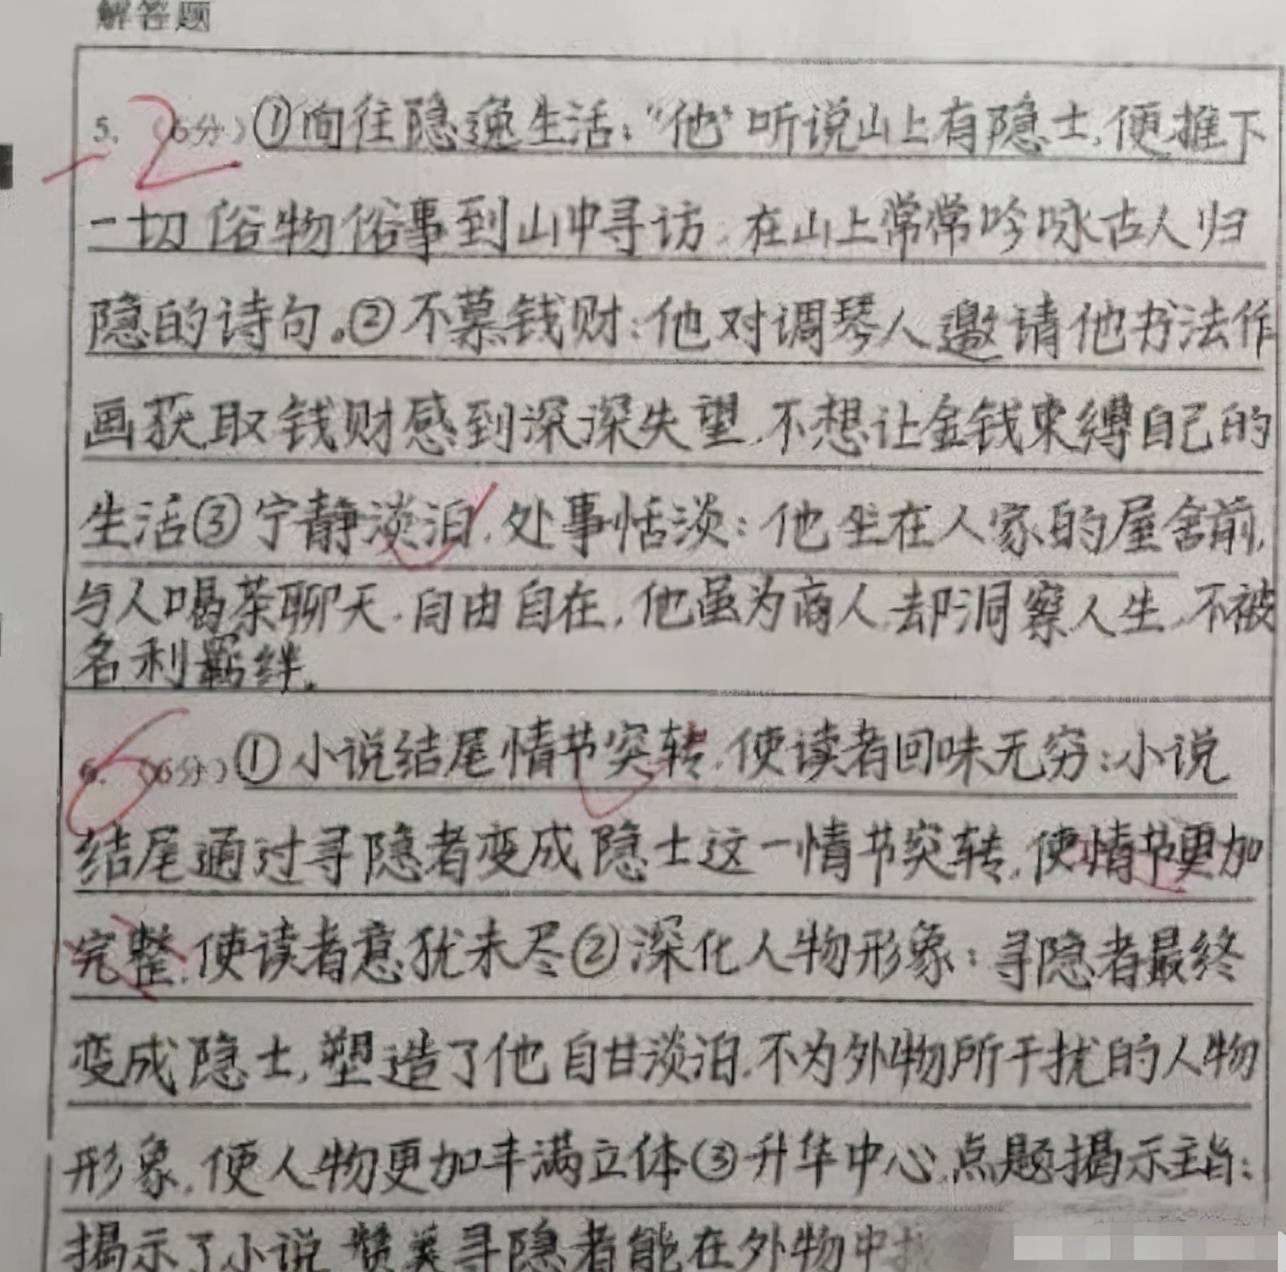 解答题
5. (6分) ①向往隐逸生活："他"听说山上有隐士,便推下
一切俗物俗事到山中寻访,在山上常常吟咏古人归
隐的诗句。②不慕钱财:他对调琴人邀请他书法作
画获取钱财感到深深失望,不想让金钱束缚自己的
生活③宁静淡泊,处事恬淡:他坐在人家的屋舍前,
与人喝茶聊天,自由自在,他虽为商人,却洞察人生,不被
名利羁绊。
-2
6. (6分)①小说结尾情节突转,使读者回味无穷:小说
结尾通过寻隐者变成隐士这一情节突转,使情节更加
完整,使读者意犹未尽②深化人物形象:寻隐者最终
变成隐士,塑造了他自甘淡泊,不为外物所干扰的人物
形象,使人物更加丰满立体③升华中心,点题揭示主旨:
揭示了小说赞美寻隐者能在外物中